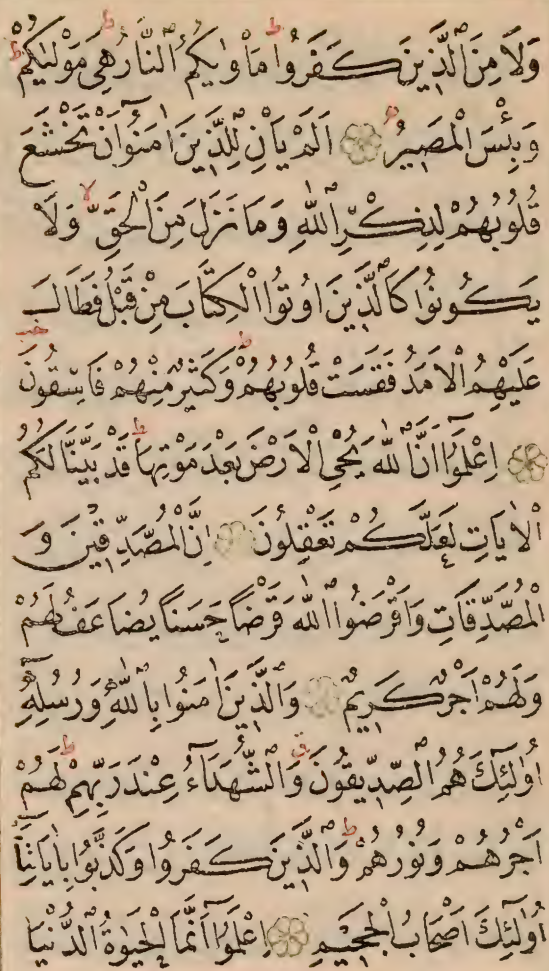 وَلَا مِنَ الَّذِينَ كَفَرُوا مَأْوٰيكُمُ النَّارُ هِيَ مَوْلٰيكُمْ
وَبِئْسَ الْمَصِيرُ اَلَمْ يَأْنِ لِلَّذِينَ اٰمَنُوا اَنْ تَخْشَعَ
قُلُوبُهُمْ لِذِكْرِ اللّٰهِ وَمَا نَزَلَ مِنَ الْحَقِّ وَلَا
يَكُونُوا كَالَّذِينَ اُوتُوا الْكِتَابَ مِنْ قَبْلُ فَطَالَ
عَلَيْهِمُ الْاَمَدُ فَقَسَتْ قُلُوبُهُمْ وَكَثِيرٌ مِنْهُمْ فَاسِقُونَ
اِعْلَمُوا اَنَّ اللّٰهَ يُحْيِ الْاَرْضَ بَعْدَ مَوْتِهَا قَدْ بَيَّنَّا لَكُمُ
الْاٰيَاتِ لَعَلَّكُمْ تَعْقِلُونَ اِنَّ الْمُصَّدِّقِينَ وَ
الْمُصَّدِّقَاتِ وَاَقْرَضُوا اللّٰهَ قَرْضًا حَسَنًا يُضَاعَفُ لَهُمْ
وَلَهُمْ اَجْرٌ كَرِيمٌ وَالَّذِينَ اٰمَنُوا بِاللّٰهِ وَرُسُلِهِ
اُولٰئِكَ هُمُ الصِّدِّيقُونَ وَالشُّهَدَاءُ عِنْدَ رَبِّهِمْ لَهُمْ
اَجْرُهُمْ وَنُورُهُمْ وَالَّذِينَ كَفَرُوا وَكَذَّبُوا بِاٰيَاتِنَا
اُولٰئِكَ اَصْحَابُ الْجَحِيمِ اِعْلَمُوا اَنَّمَا الْحَيٰوةُ الدُّنْيَا